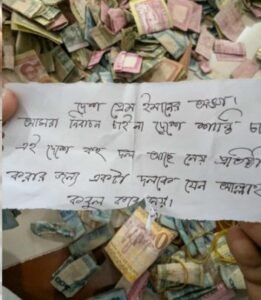 দেশ প্রেম ইমানের অঙ্গ।
আমরা নির্বাচন চাই না দেশে শান্তি চা
এই দেশে বহু দল আছে ন্যায় প্রতিষ্ঠা
করার জন্য একটা দলকে যেন আল্লাহ
কবুল করে নেয়।